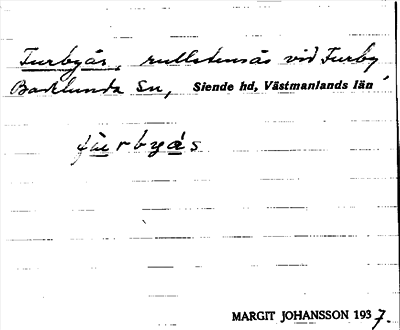 Turbyås, rullstensås vid Turby,
Badelunda Sn, Siende hd, Västmanlands län
turbyås
MARGIT JOHANSSON 1937.